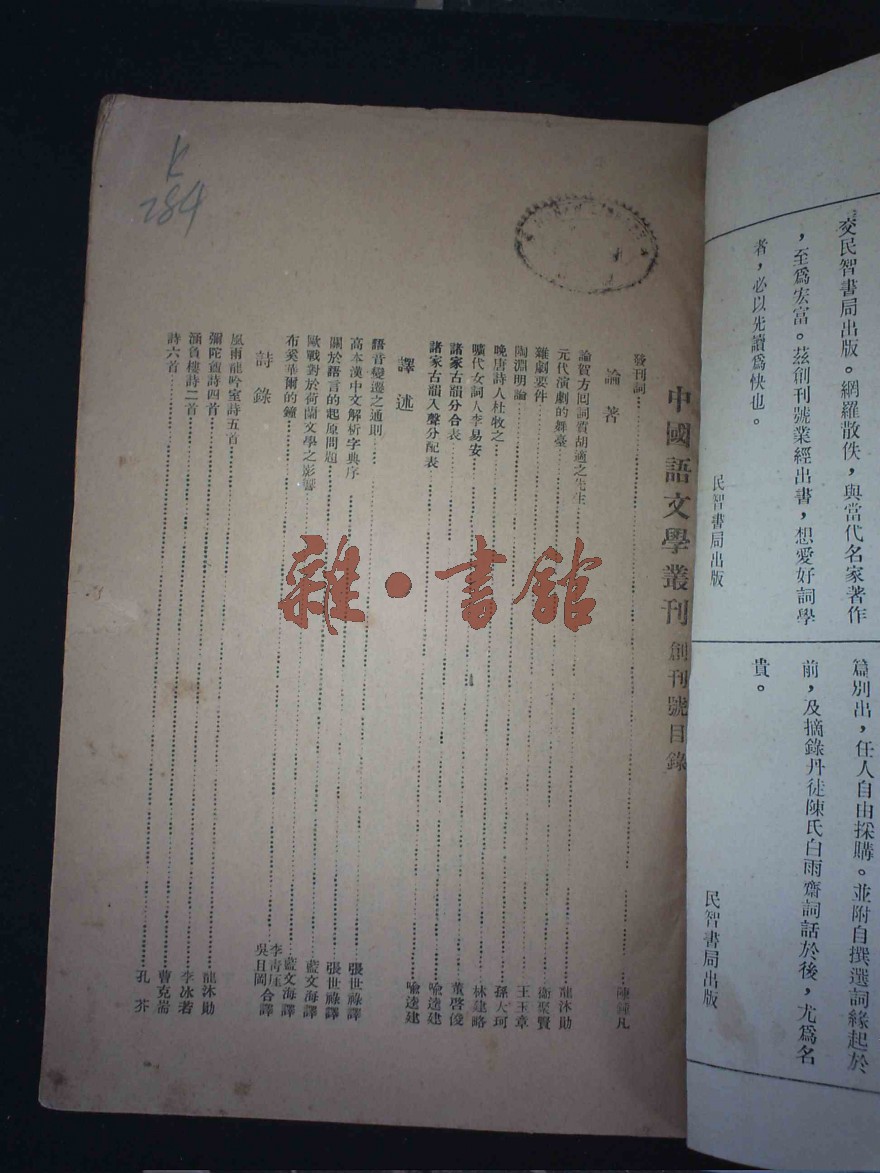 交民智書局出版。網羅散佚，與當代名家著作
，至爲宏富。茲創刊號業經出書，想愛好詞學
者，必以先讀爲快也。
民智書局出版
篇別出，任人自由採購。並附自撰選詞緣起於
前，及摘錄丹徒陳氏白雨齋詞話於後，尤爲名
貴。
民智書局出版
中國語文學叢刊 創刊號目錄
發刊詞 陳鐘凡
論著
論賀方囘詞質胡適之先生 龍沐勛
元代演劇的舞臺 衛聚賢
雜劇要件 王玉章
陶淵明論 孫大珂
晚唐詩人杜牧之 林建略
曠代女詞人李易安 董啓俊
諸家古韻分合表 喩逵建
諸家古韻入聲分配表 喩逵建
譯述
語音變遷之通則 張世祿譯
高本漢中文解析字典序 張世祿譯
關於語言的起原問題 藍文海譯
歐戰對於荷蘭文學之影響 藍文海譯
布奚華爾的鐘 李青厓 吳且岡 合譯
詩錄
風雨龍吟室詩五首 龍沐勛
彌陀舊詩四首 李冰若
涵負樓詩二首 曹克
詩六首 孔芥
K
284
雜·書館